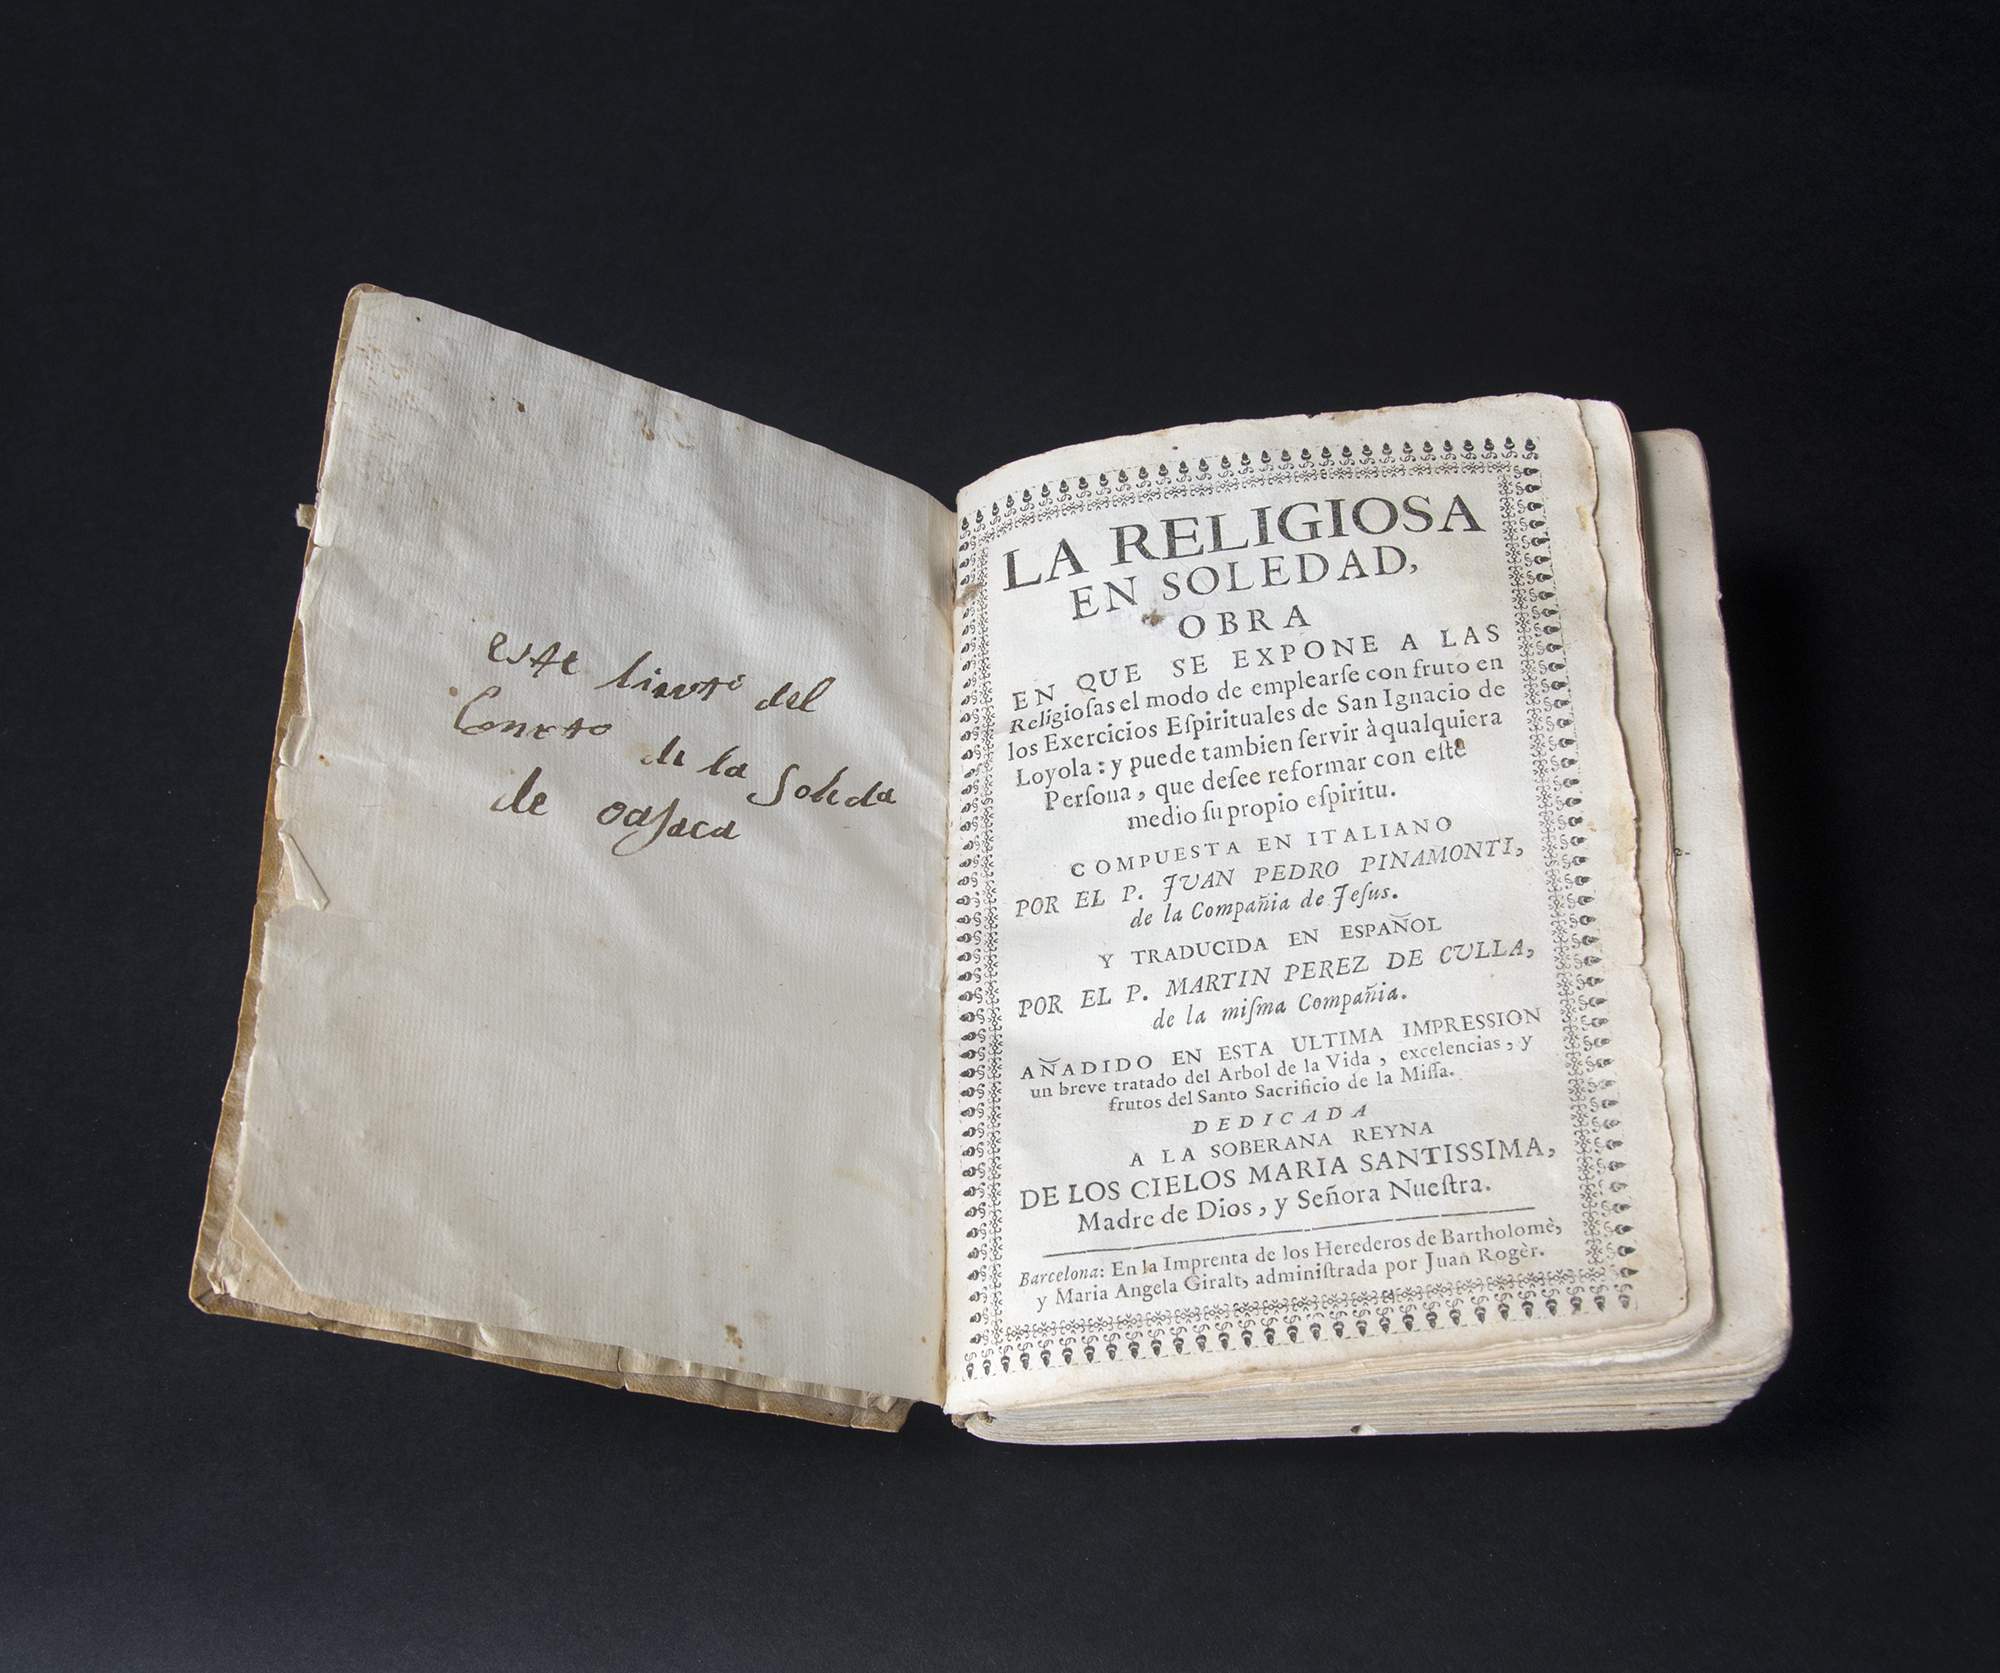 este livrro del
Conето
de la Soleda
de oajaca
LA RELIGIOSA
EN SOLEDAD,
OBRA
EN QUE SE EXPONE A LAS
Religioſas el modo de emplearſe con fruto en
los Exercicios Eſpirituales de San Ignacio de
Loyola: y puede tambien ſervir à qualquiera
Perſona, que deſee reformar con eſte
medio ſu propio eſpiritu.
COMPUESTA EN ITALIANO
POR EL P. JVAN PEDRO PINAMONTI,
de la Compañia de Jeſus.
Y TRADUCIDA EN ESPAÑOL
POR EL P. MARTIN PEREZ DE CVLLA,
de la miſma Compañia.
AÑADIDO EN ESTA ULTIMA IMPRESSION
un breve tratado del Arbol de la Vida, excelencias, y
frutos del Santo Sacrificio de la Miſſa.
DEDICADA
A LA SOBERANA REYNA
DE LOS CIELOS MARIA SANTISSIMA,
Madre de Dios, y Señora Nueſtra.
Barcelona: En la Imprenta de los Herederos de Bartholomè,
y Maria Angela Giralt, adminiſtrada por Juan Rogèr.